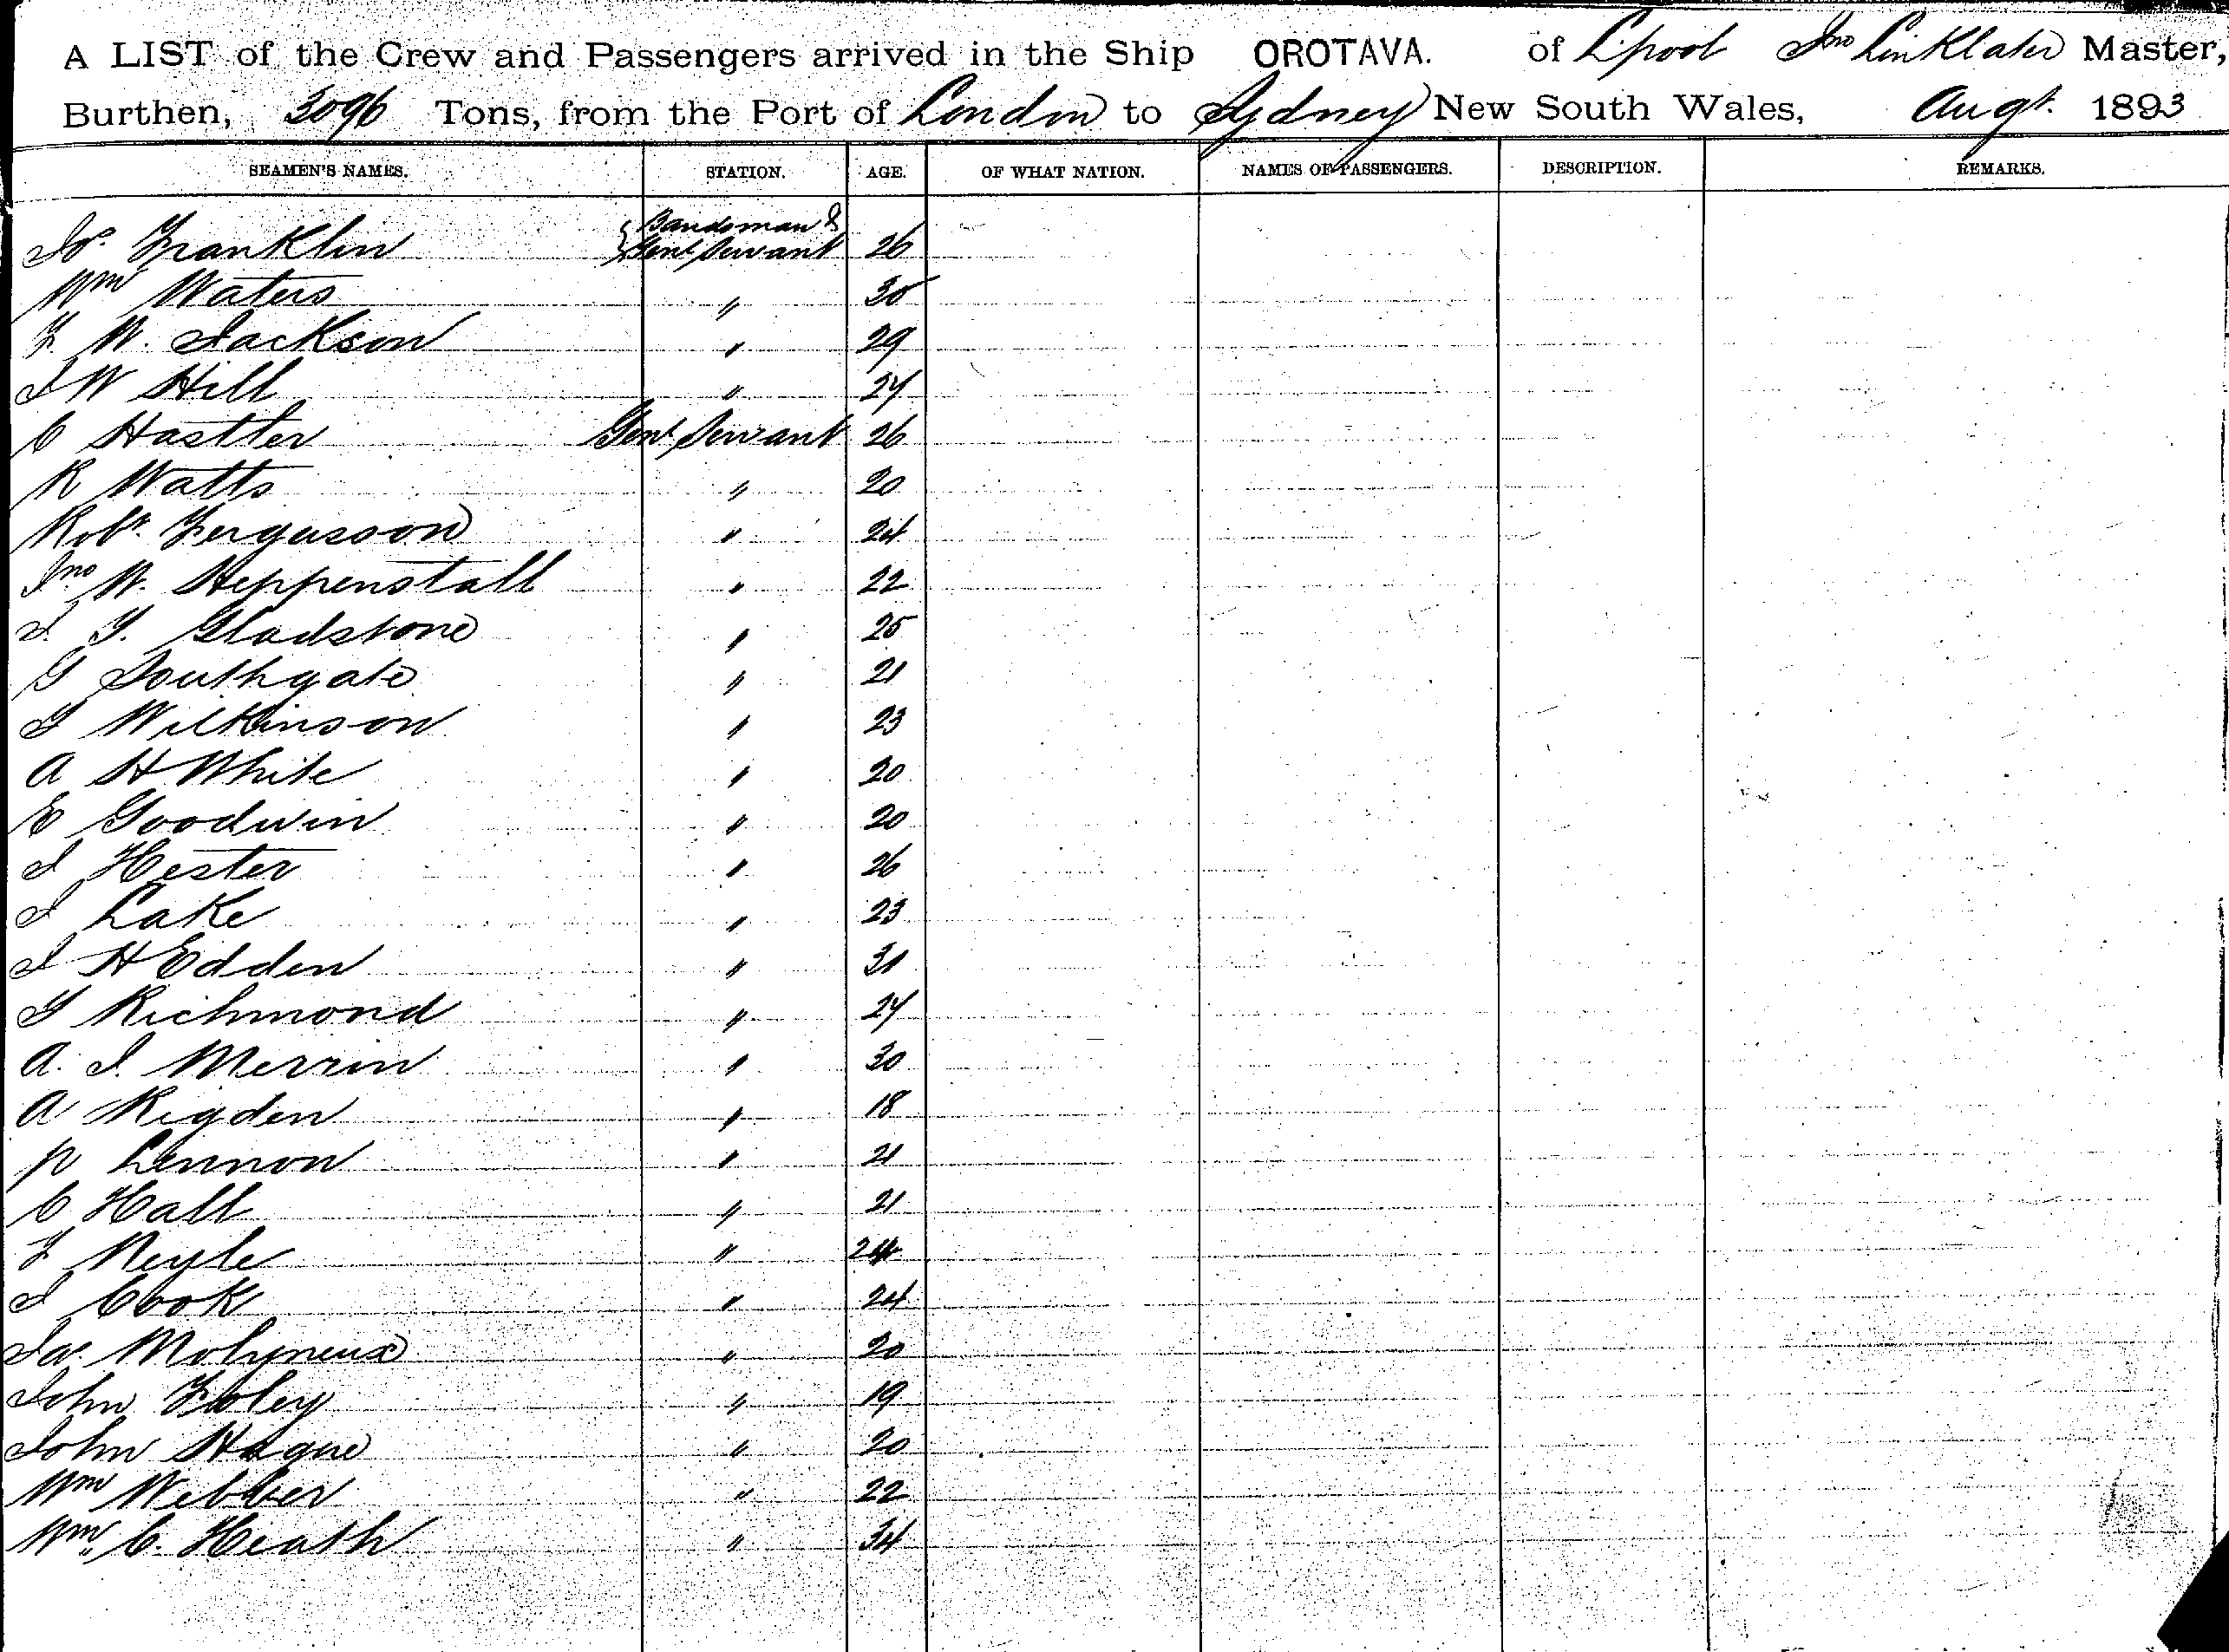 A LIST of the Crew and Passengers arrived in the Ship OROTAVA. of L'pool Jno Linklater Master,
Burthen, 3096 Tons, from the Port of London to Sydney New South Wales, Augt. 1893
SEAMEN'S NAMES. STATION. AGE. OF WHAT NATION. NAMES OF PASSENGERS. DESCRIPTION. REMARKS.
Jos. Franklin Bandsman & Genl Servant 26
Wm Waters " 30
F. W. Jackson " 29
J W Hill " 24
C Hastler Genl Servant 26
R Watts " 20
Robt. Fergusson " 24
Jno W. Heppenstall " 22
J. Y. Gladstone " 25
G Southgate " 21
T Wilkinson " 23
A H White " 20
E Goodwin " 20
J Hester " 26
J Lake " 23
J H Edden " 31
G Richmond " 24
A. J. Merrin " 30
A Rigden " 18
P Lennon " 21
C Hall " 21
F Neyle " 24
J Cook " 24
Jas. Molyneux " 20
John Foley " 19
John Hague " 20
Wm Webber " 22
Wm. C. Heath " 34